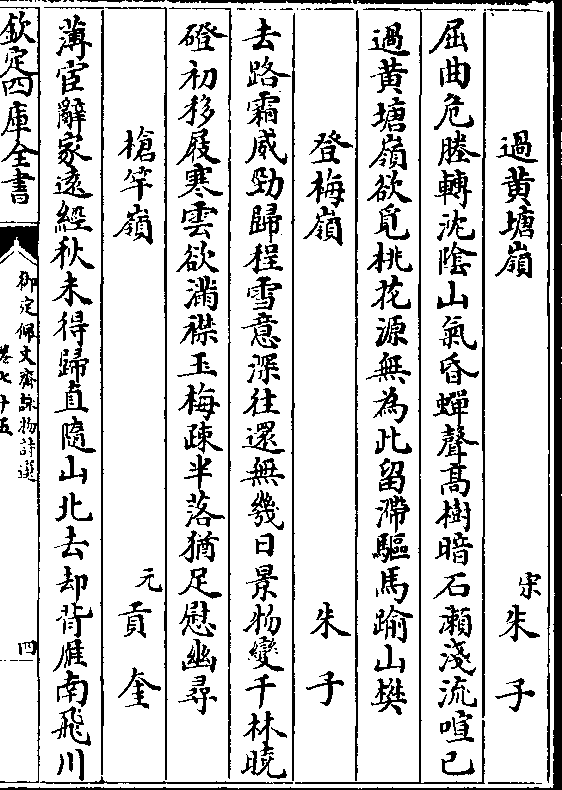 過黄塘嶺　宋朱子
屈曲危塍轉沈陰山氣昏蟬聲髙樹暗石瀬淺流喧已
過黄塘嶺欲覓桃花源無為此留滯驅馬踰山樊
登梅嶺　朱子
去路霜威勁歸程雪意深往還無幾日景物變千林曉
磴初移屐寒雲欲滿襟玉梅疎半落猶足慰幽尋
槍竿嶺　元貢奎
薄宦辭家逺經秋未得歸直隨山北去却背雁南飛川
欽定四庫全書
御定佩文齋詠物詩選
卷七十五
四